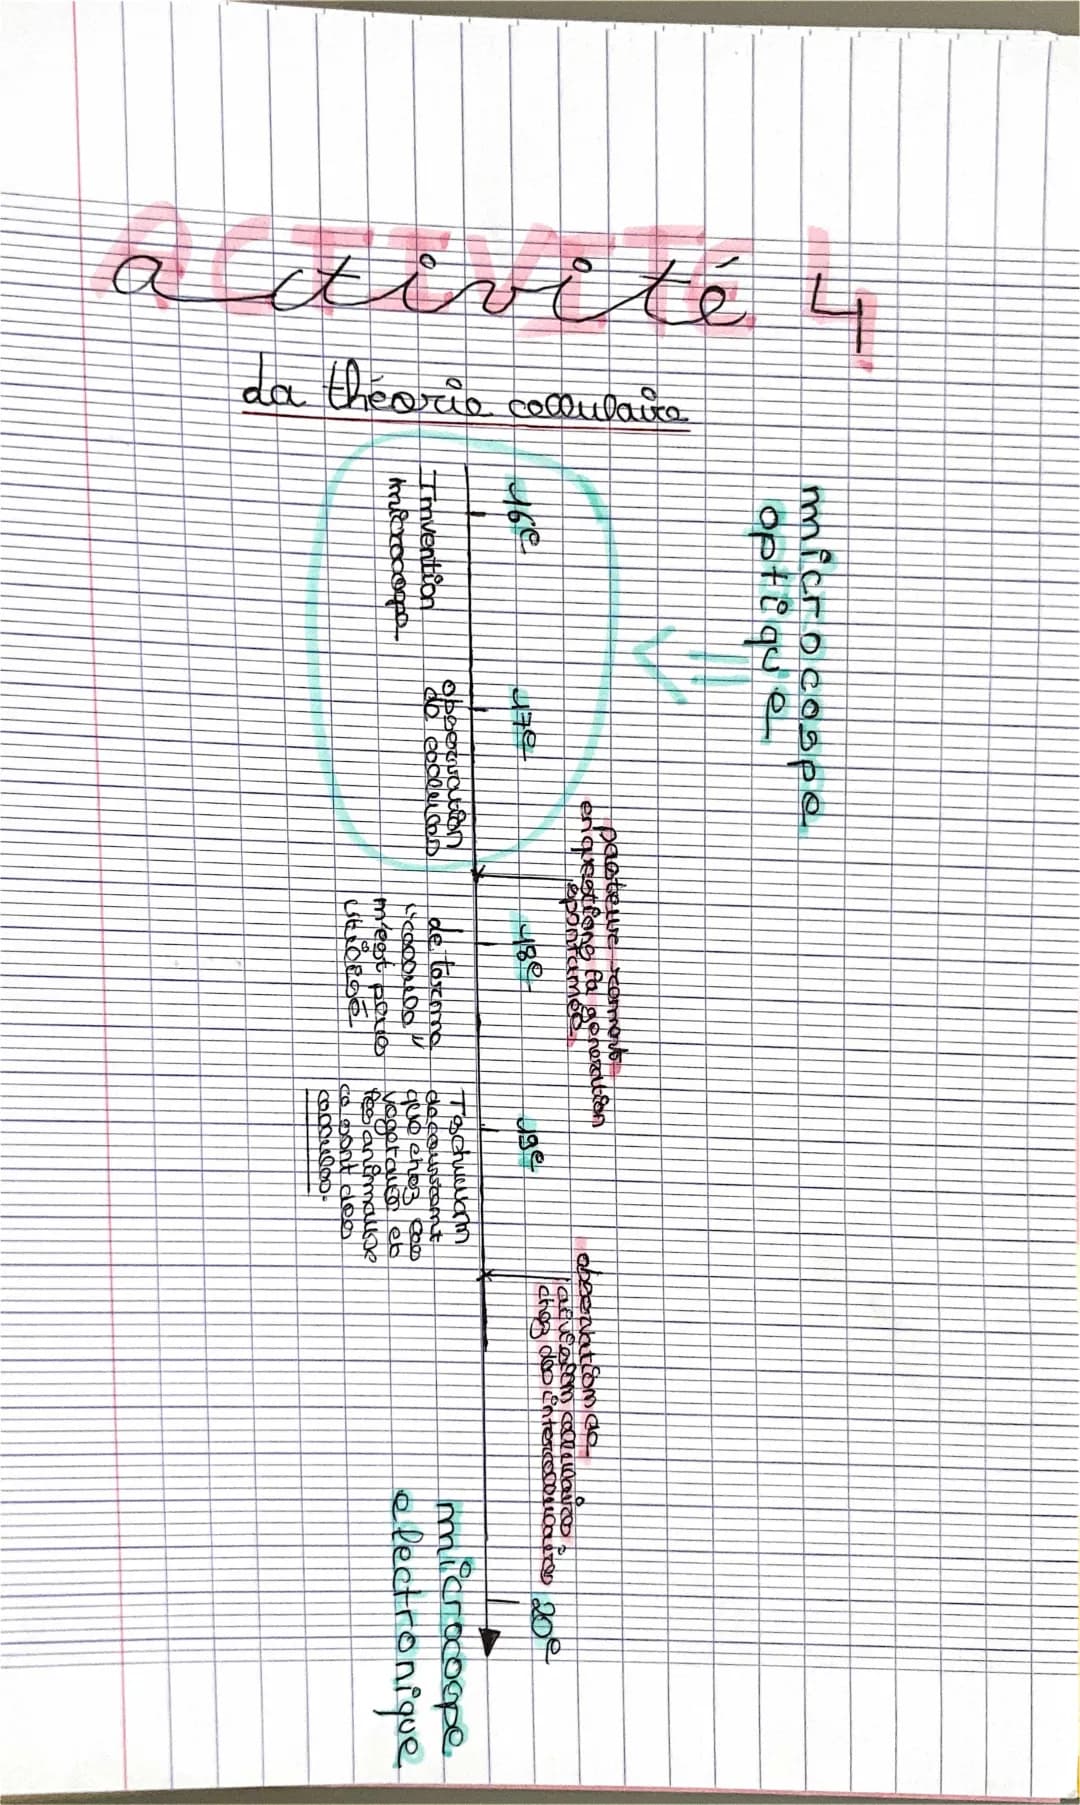 ACTIVITÉ 4
activité 4
La théorie cellulaire
microcospe
optique
16e
Invention
microcope
17e
observation
de cellules
pasteur remont
en questions la generation
spontanée
18e
Le terme
"cellules"
n'est plus
utilisé
19e
Tschwann
découvrent
que chez les
vegetaux et
les animaux
ce sont des
cellules.
observation de
division cellulaire
chez des
20e
microcope
electronique